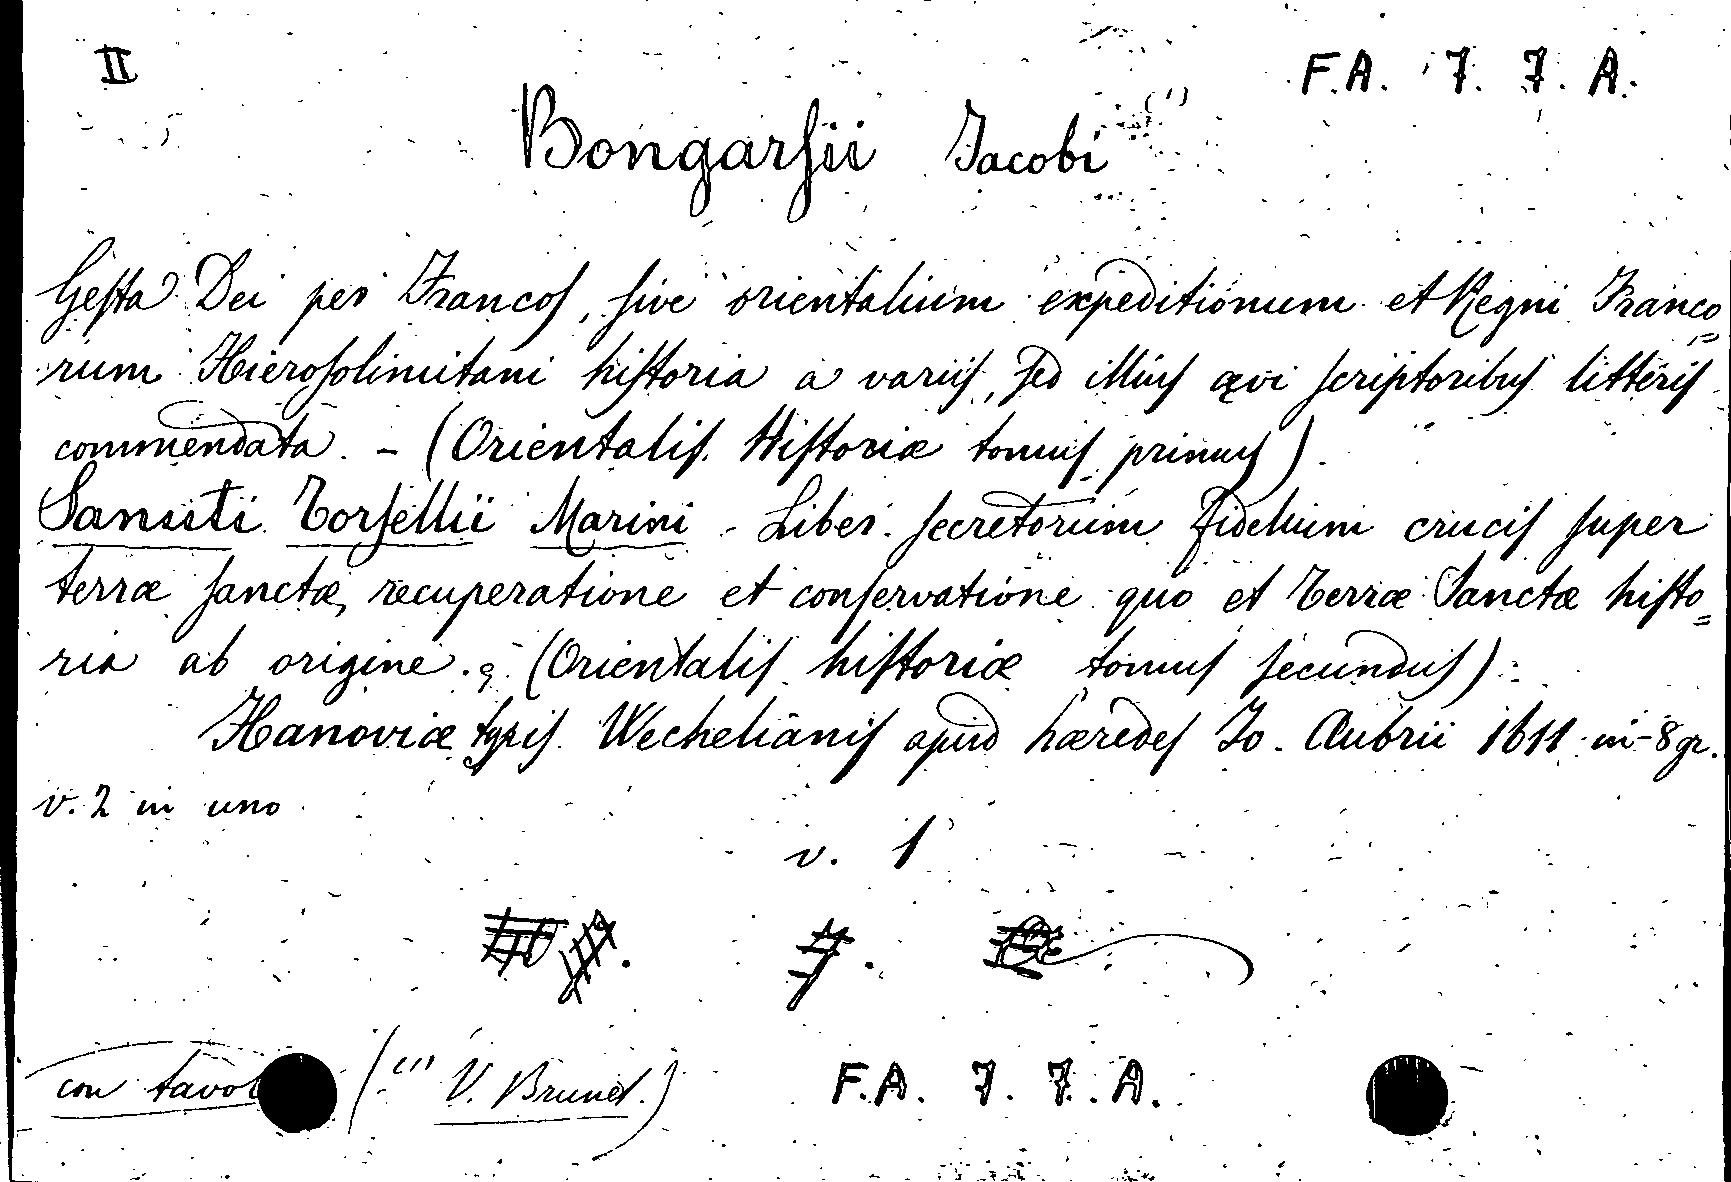 II
F.A. 7. 7. A.
Bongarsii Jacobi (1)
Gesta Dei per Francos, sive orientalium expeditionum et Regni Franco=
rum Hierosolimitani historia a variis, sed illius ævi scriptoribus litteris
commendata. - (Orientalis Historiæ tomus primus).
Sanuti Torsellii Marini - Liber secretorum fidelium crucis super
terræ sanctæ, recuperatione et conservatione quo et Terræ Sanctæ histo=
ria ab origine. (Orientalis historiæ tomus secundus).
Hanoviæ typis Wechelianis apud hæredes Jo. Aubrii 1611 in-8 gr.
v. 2 in uno
v. 1
7.
con tavol
((1) V. Brunet.)
F.A. 7. 7. A.